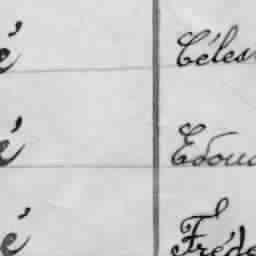 é Céles
é Edoua
é Fréde